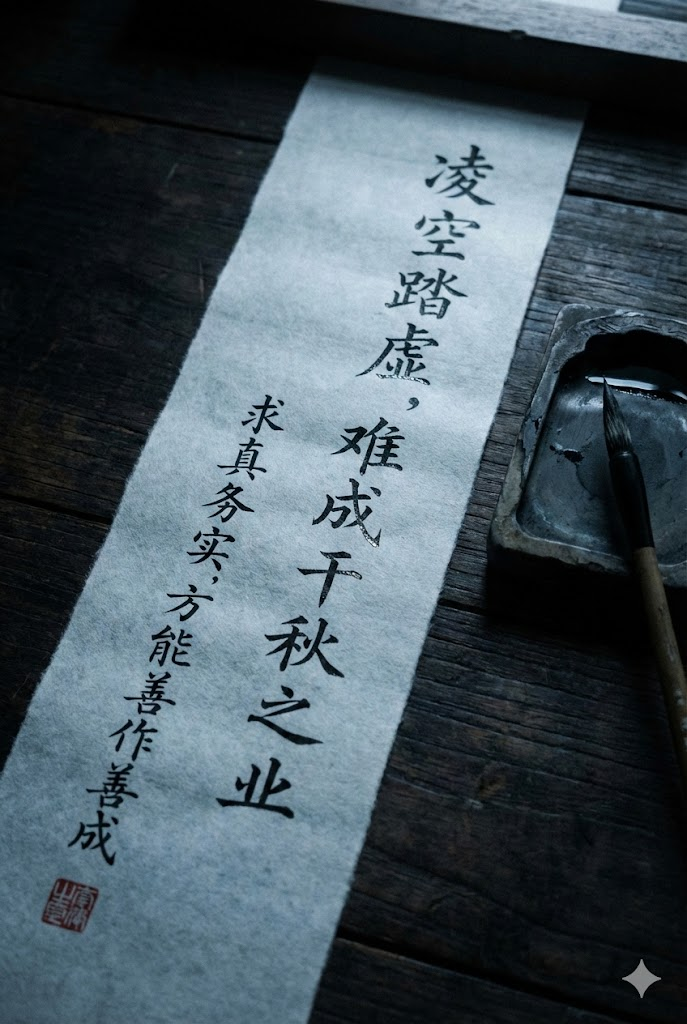 凌空踏虚，难成千秋之业
求真务实，方能善作善成